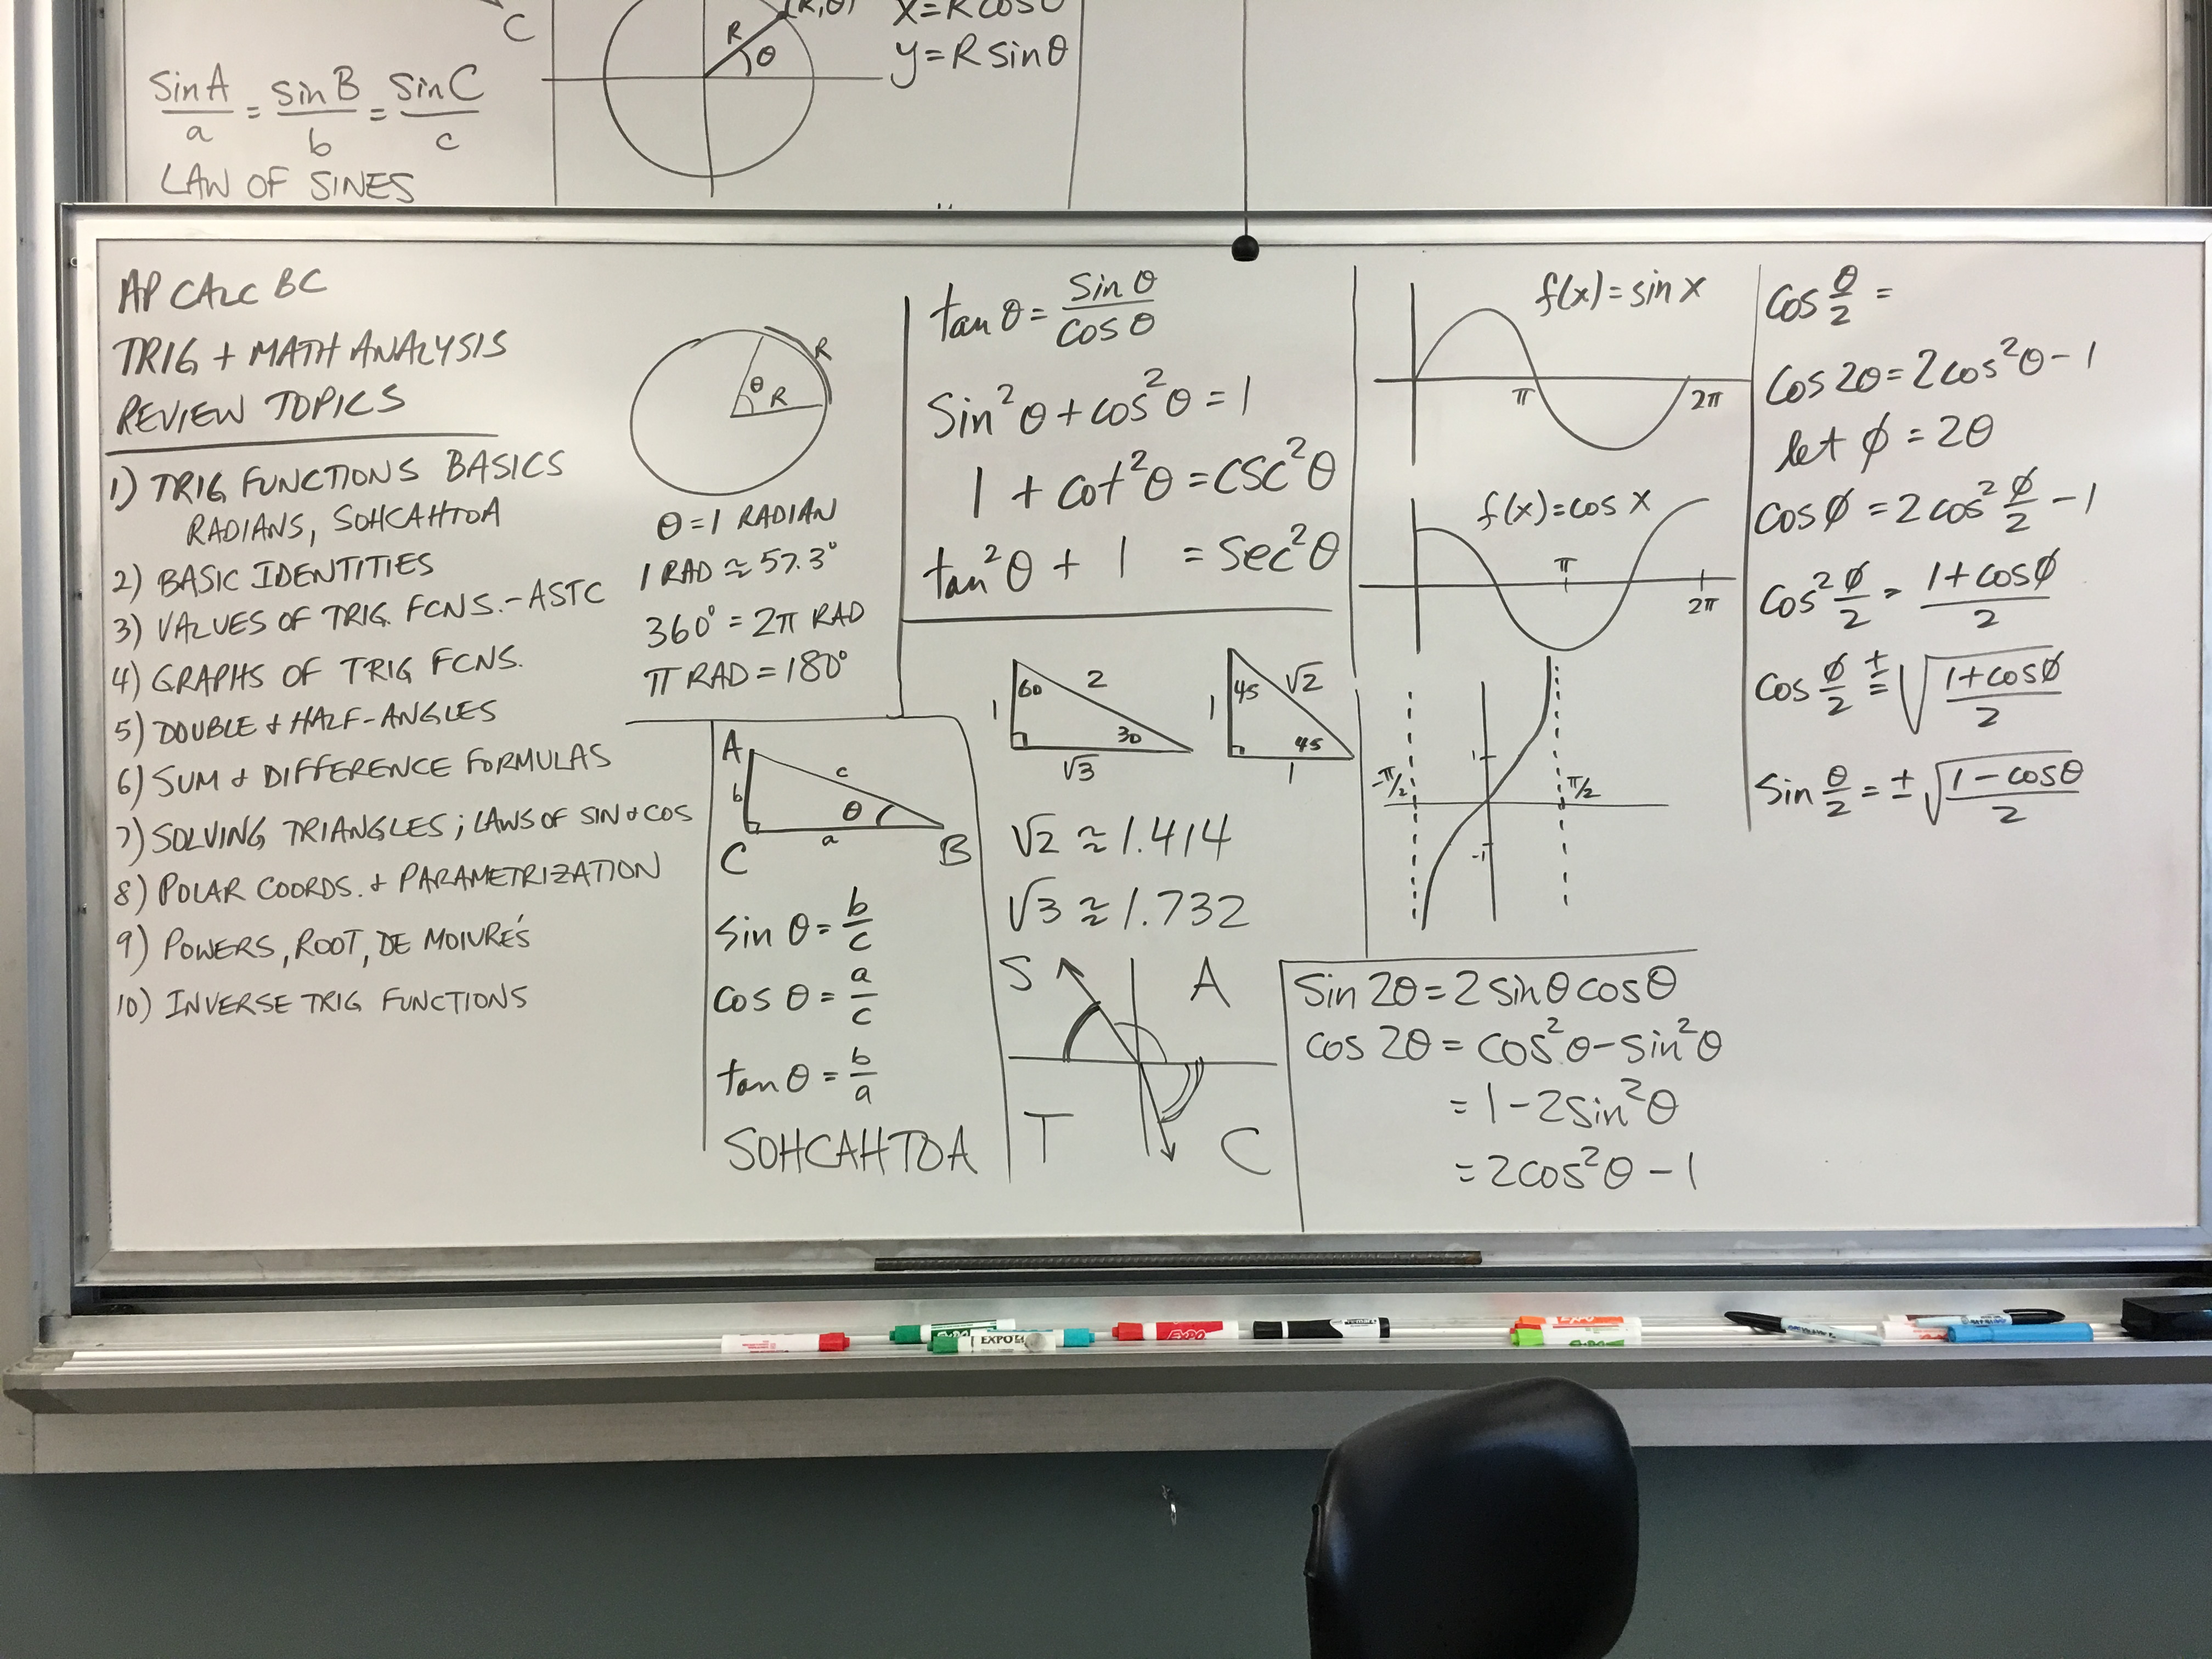 C
sin A / a = sin B / b = sin C / c
LAW OF SINES
R
θ
(R,θ)
x=Rcosθ
y=R sinθ
AP CALC BC
TRIG + MATH ANALYSIS
REVIEW TOPICS
1) TRIG FUNCTIONS BASICS
RADIANS, SOHCAHTOA
2) BASIC IDENTITIES
3) VALUES OF TRIG FCNS.-ASTC
4) GRAPHS OF TRIG FCNS.
5) DOUBLE + HALF-ANGLES
6) SUM + DIFFERENCE FORMULAS
7) SOLVING TRIANGLES; LAWS OF SIN + COS
8) POLAR COORDS. + PARAMETRIZATION
9) POWERS, ROOT, DE MOIVRE'S
10) INVERSE TRIG FUNCTIONS
R
θ
R
θ=1 RADIAN
1 RAD ≈ 57.3°
360° = 2π RAD
π RAD = 180°
A
c
b
θ
a
C
B
sin θ = b/c
cos θ = a/c
tan θ = b/a
SOHCAHTOA
tan θ = sin θ / cos θ
sin²θ + cos²θ = 1
1 + cot²θ = csc²θ
tan²θ + 1 = sec²θ
60
2
1
30
√3
45
√2
1
45
1
√2 ≈ 1.414
√3 ≈ 1.732
S
A
T
C
f(x)=sin x
π
2π
f(x)=cos x
π
2π
1
-π/2
π/2
-1
sin 2θ = 2 sinθ cosθ
cos 2θ = cos²θ - sin²θ
= 1 - 2sin²θ
= 2cos²θ - 1
cos θ/2 =
cos 2θ = 2cos²θ - 1
let ϕ = 2θ
cosϕ = 2cos² ϕ/2 - 1
cos² ϕ/2 = (1+cosϕ)/2
cos ϕ/2 = ± √((1+cosϕ)/2)
sin θ/2 = ± √((1-cosθ)/2)
EXPO
EXPO
EXPO